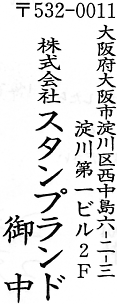 〒532-0011
大阪府大阪市淀川区西中島六-二-三
淀川第一ビル２Ｆ
株式会社スタンプランド
御中